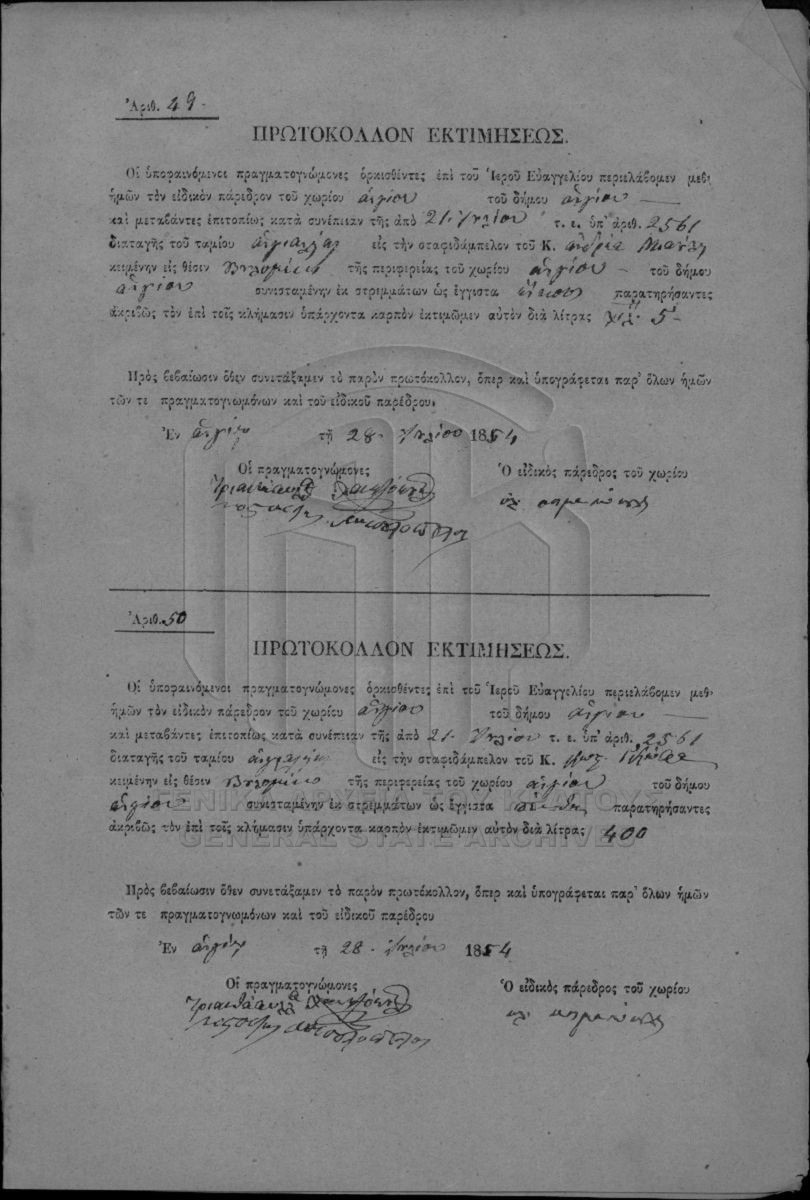 Ἀριθ. 49
ΠΡΩΤΟΚΟΛΛΟΝ ΕΚΤΙΜΗΣΕΩΣ.
Οἱ ὑποφαινόμενοι πραγματογνώμονες ὁρκισθέντες ἐπὶ τοῦ Ἱεροῦ Εὐαγγελίου περιελάβομεν μεθ᾽
ἡμῶν τὸν εἰδικὸν πάρεδρον τοῦ χωρίου Αἰγίου τοῦ δήμου Αἰγίου
καὶ μεταβάντες ἐπιτοπίως κατὰ συνέπειαν τῆς ἀπὸ 21 Ἰουλίου τ. ε. ὑπ᾽ ἀριθ. 2561
διαταγῆς τοῦ ταμίου εἰς τὴν σταφιδάμπελον τοῦ Κ.
κειμένην εἰς θέσιν τῆς περιφερείας τοῦ χωρίου Αἰγίου τοῦ δήμου
Αἰγίου συνισταμένην ἐκ στρεμμάτων ὡς ἔγγιστα παρατηρήσαντες
ἀκριβῶς τὸν ἐπὶ τοῖς κλήμασιν ὑπάρχοντα καρπὸν ἐκτιμῶμεν αὐτὸν διὰ λίτρας χιλ. 5
Πρὸς βεβαίωσιν ὅθεν συνετάξαμεν τὸ παρὸν πρωτόκολλον, ὅπερ καὶ ὑπογράφεται παρ᾽ ὅλων ἡμῶν
τῶν τε πραγματογνωμόνων καὶ τοῦ εἰδικοῦ παρέδρου.
Ἐν Αἰγίῳ τῇ 28 Ἰουλίου 1854
Οἱ πραγματογνώμονες Ὁ εἰδικὸς πάρεδρος τοῦ χωρίου
Ἀριθ. 50
ΠΡΩΤΟΚΟΛΛΟΝ ΕΚΤΙΜΗΣΕΩΣ.
Οἱ ὑποφαινόμενοι πραγματογνώμονες ὁρκισθέντες ἐπὶ τοῦ Ἱεροῦ Εὐαγγελίου περιελάβομεν μεθ᾽
ἡμῶν τὸν εἰδικὸν πάρεδρον τοῦ χωρίου Αἰγίου τοῦ δήμου Αἰγίου
καὶ μεταβάντες ἐπιτοπίως κατὰ συνέπειαν τῆς ἀπὸ 21 Ἰουλίου τ. ε. ὑπ᾽ ἀριθ. 2561
διαταγῆς τοῦ ταμίου εἰς τὴν σταφιδάμπελον τοῦ Κ.
κειμένην εἰς θέσιν τῆς περιφερείας τοῦ χωρίου Αἰγίου τοῦ δήμου
Αἰγίου συνισταμένην ἐκ στρεμμάτων ὡς ἔγγιστα παρατηρήσαντες
ΓΕΝΙΚΑ ΑΡΧΕΙΑ ΤΟΥ ΚΡΑΤΟΥΣ
ἀκριβῶς τὸν ἐπὶ τοῖς κλήμασιν ὑπάρχοντα καρπὸν ἐκτιμῶμεν αὐτὸν διὰ λίτρας 400
GENERAL STATE ARCHIVES
Πρὸς βεβαίωσιν ὅθεν συνετάξαμεν τὸ παρὸν πρωτόκολλον, ὅπερ καὶ ὑπογράφεται παρ᾽ ὅλων ἡμῶν
τῶν τε πραγματογνωμόνων καὶ τοῦ εἰδικοῦ παρέδρου
Ἐν Αἰγίῳ τῇ 28 Ἰουλίου 1854
Οἱ πραγματογνώμονες Ὁ εἰδικὸς πάρεδρος τοῦ χωρίου